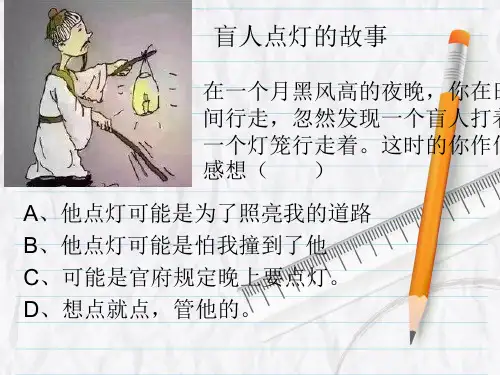 盲人点灯的故事
在一个月黑风高的夜晚，你在
间行走，忽然发现一个盲人打着
一个灯笼行走着。这时的你作
感想（　　）
A、他点灯可能是为了照亮我的道路
B、他点灯可能是怕我撞到了他
C、可能是官府规定晚上要点灯。
D、想点就点，管他的。